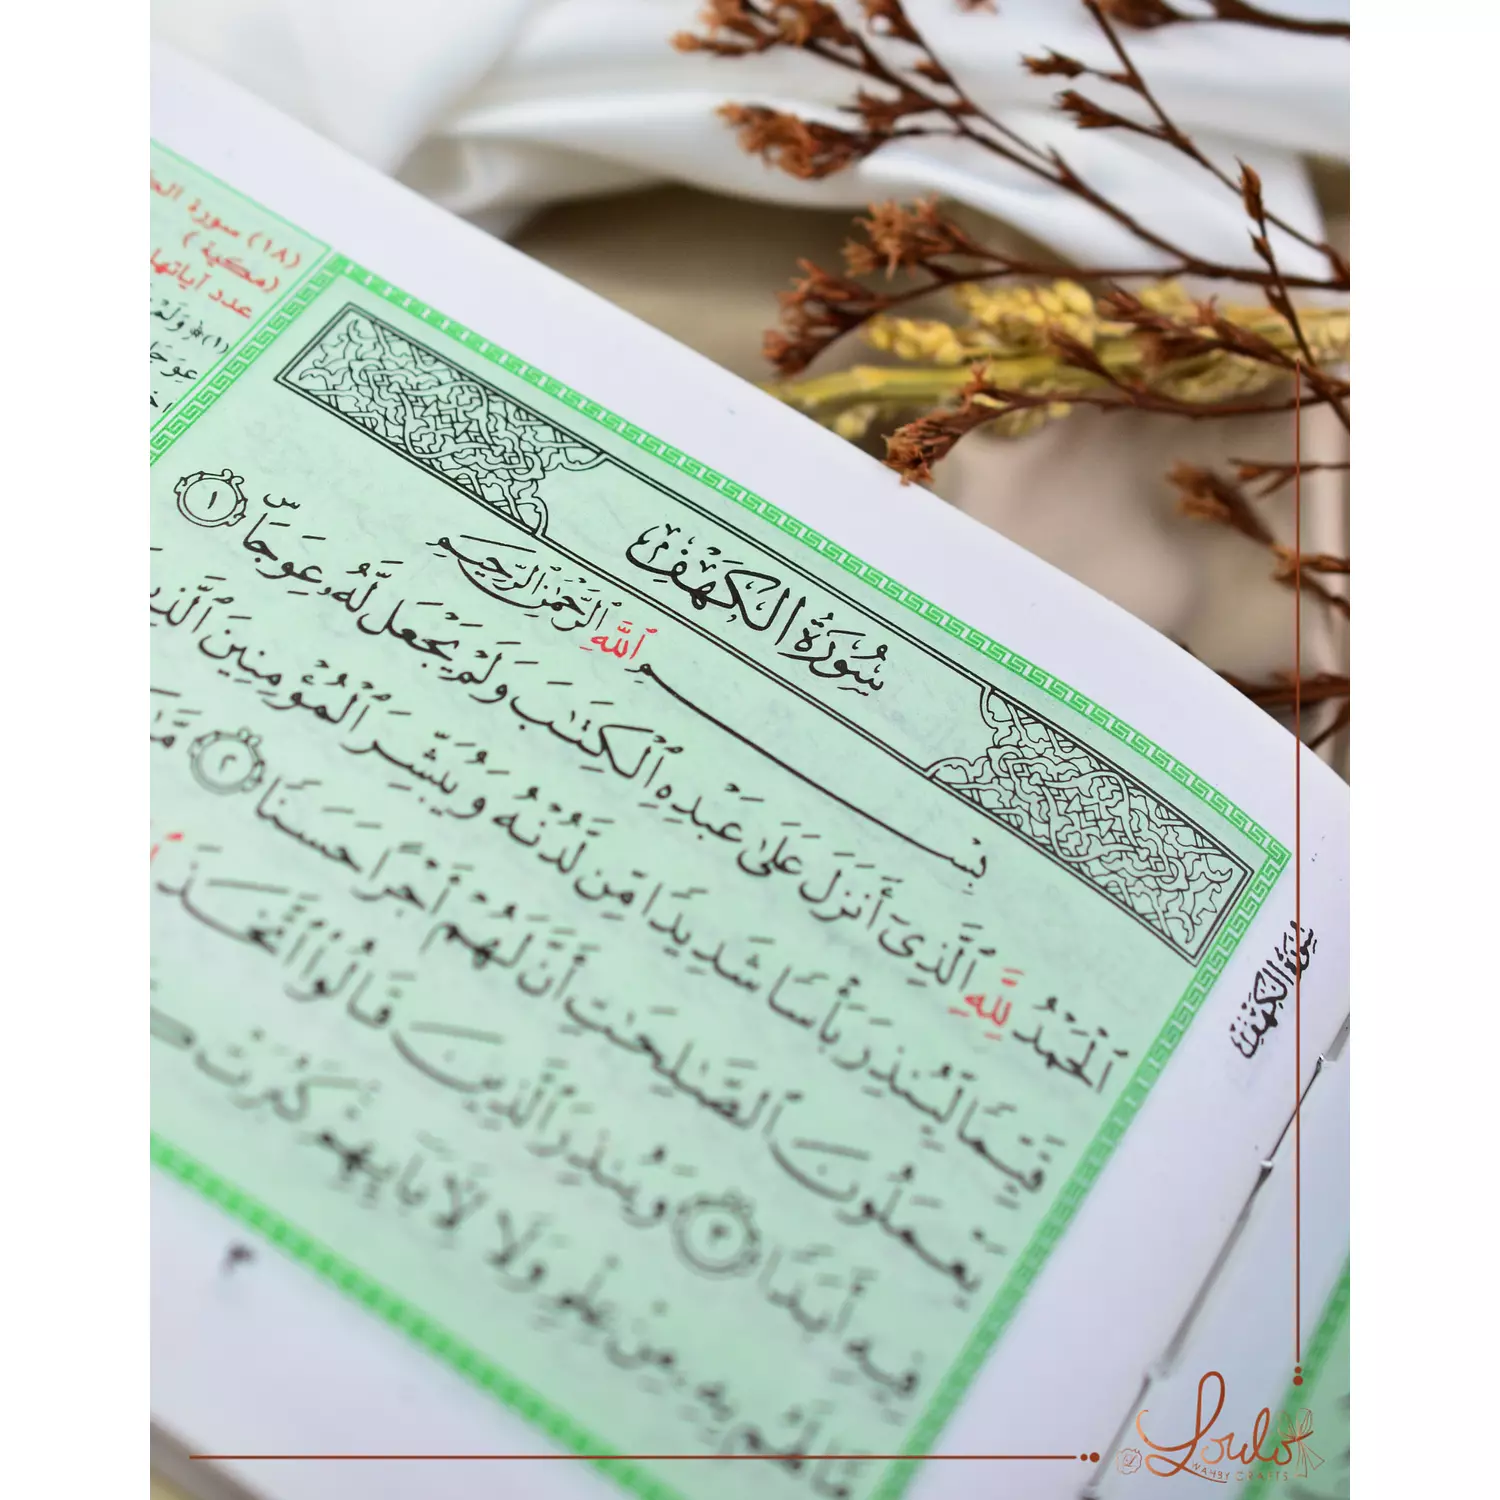 سُورَةُ الكَهْفِ
بِسْمِ ٱللَّهِ ٱلرَّحْمَٰنِ ٱلرَّحِيمِ
ٱلْحَمْدُ لِلَّهِ ٱلَّذِىٓ أَنزَلَ عَلَىٰ عَبْدِهِ ٱلْكِتَٰبَ وَلَمْ يَجْعَل لَّهُۥ عِوَجَاۜ ١
قَيِّمًا لِّيُنذِرَ بَأْسًا شَدِيدًا مِّن لَّدُنْهُ وَيُبَشِّرَ ٱلْمُؤْمِنِينَ ٱلَّذِينَ
يَعْمَلُونَ ٱلصَّٰلِحَٰتِ أَنَّ لَهُمْ أَجْرًا حَسَنًا ٢
فِيهِ أَبَدًا ٣ وَيُنذِرَ ٱلَّذِينَ قَالُوا۟ ٱتَّخَذَ
مَّا لَهُم بِهِۦ مِنْ عِلْمٍ وَلَا لِءَابَآئِهِمْ كَبُرَتْ
(١٨) سورة
(مكية)
عدد آياتها
سُورَةُ الكَهْفِ
Loulo
WAHBY CRAFTS